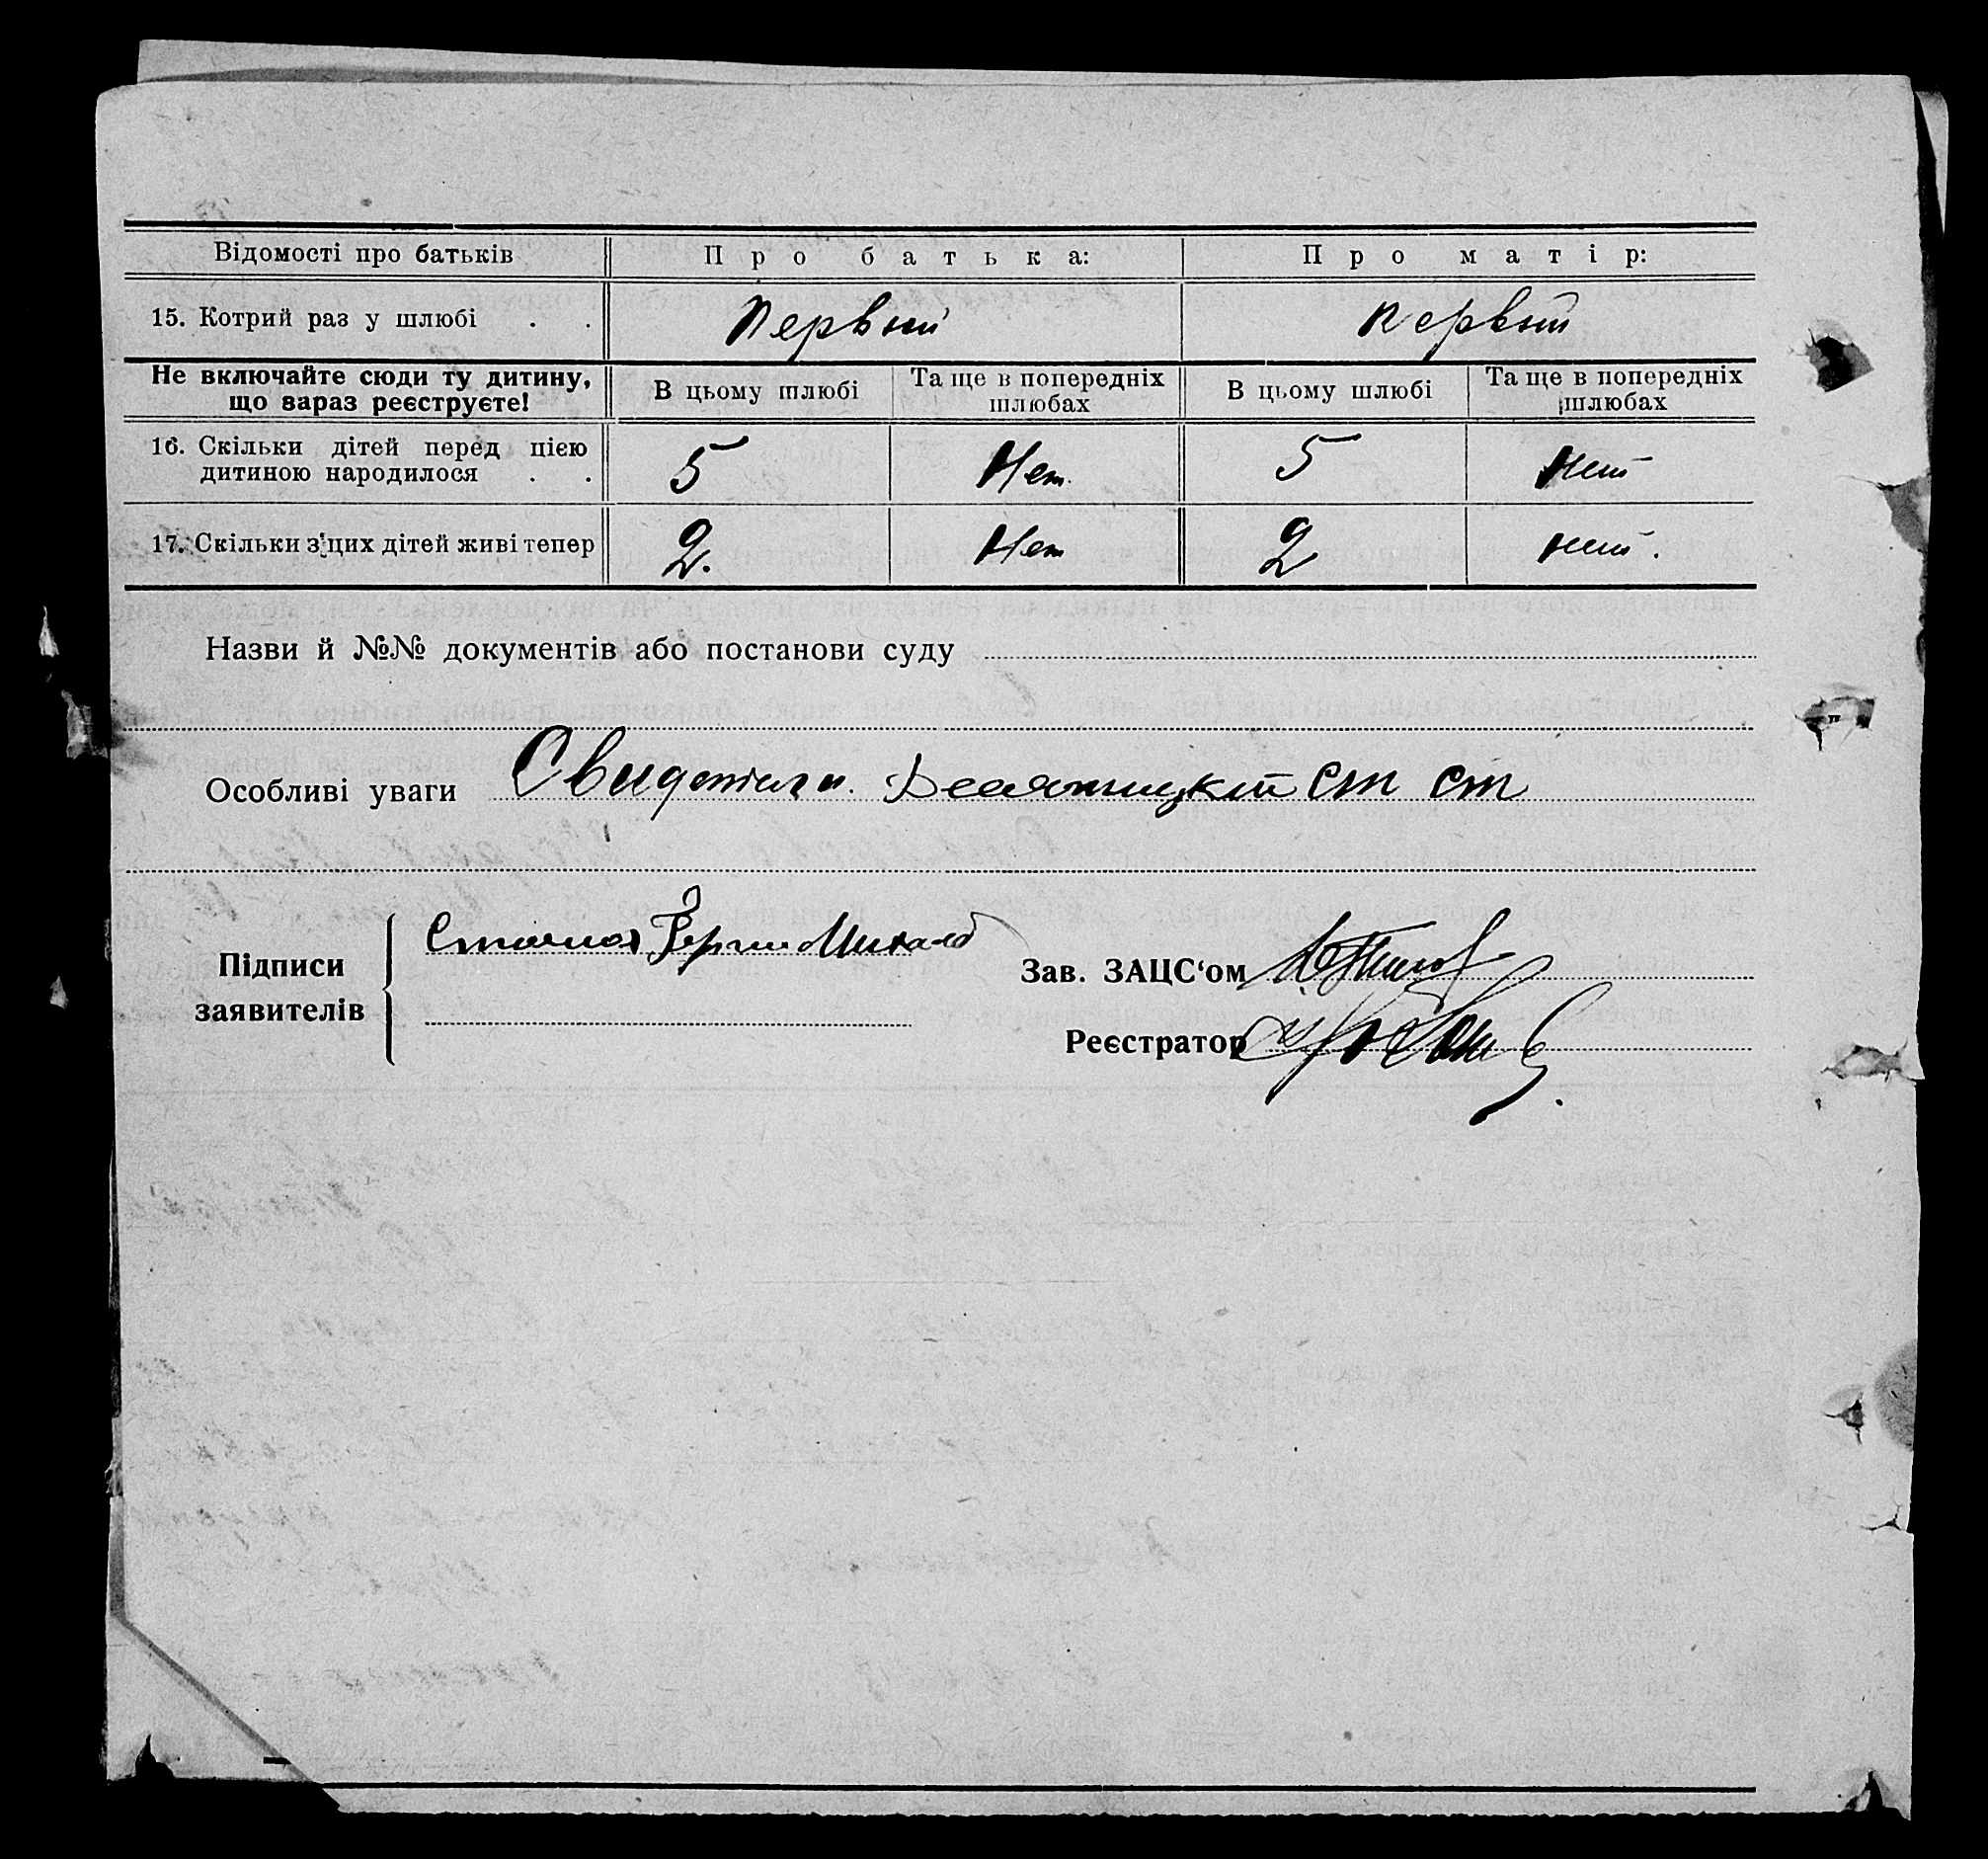 Відомості про батьків П р о б а т ь к а: П р о м а т і р:
15. Котрий раз у шлюбі . . Первый первый
Не включайте сюди ту дитину, що вараз реєструєте!
В цьому шлюбі Та ще в попередніх шлюбах В цьому шлюбі Та ще в попередніх шлюбах
16. Скільки дітей перед цією
дитиною народилося . . 5 Нет. 5 Нет
17. Скільки з'цих дітей живі тепер 2. Нет 2 нет.
Назви й №№ документів або постанови суду
Особливі уваги Свидетели. ст ст
Підписи
заявителів
Зав. ЗАЦС‘ом
Реєстратор